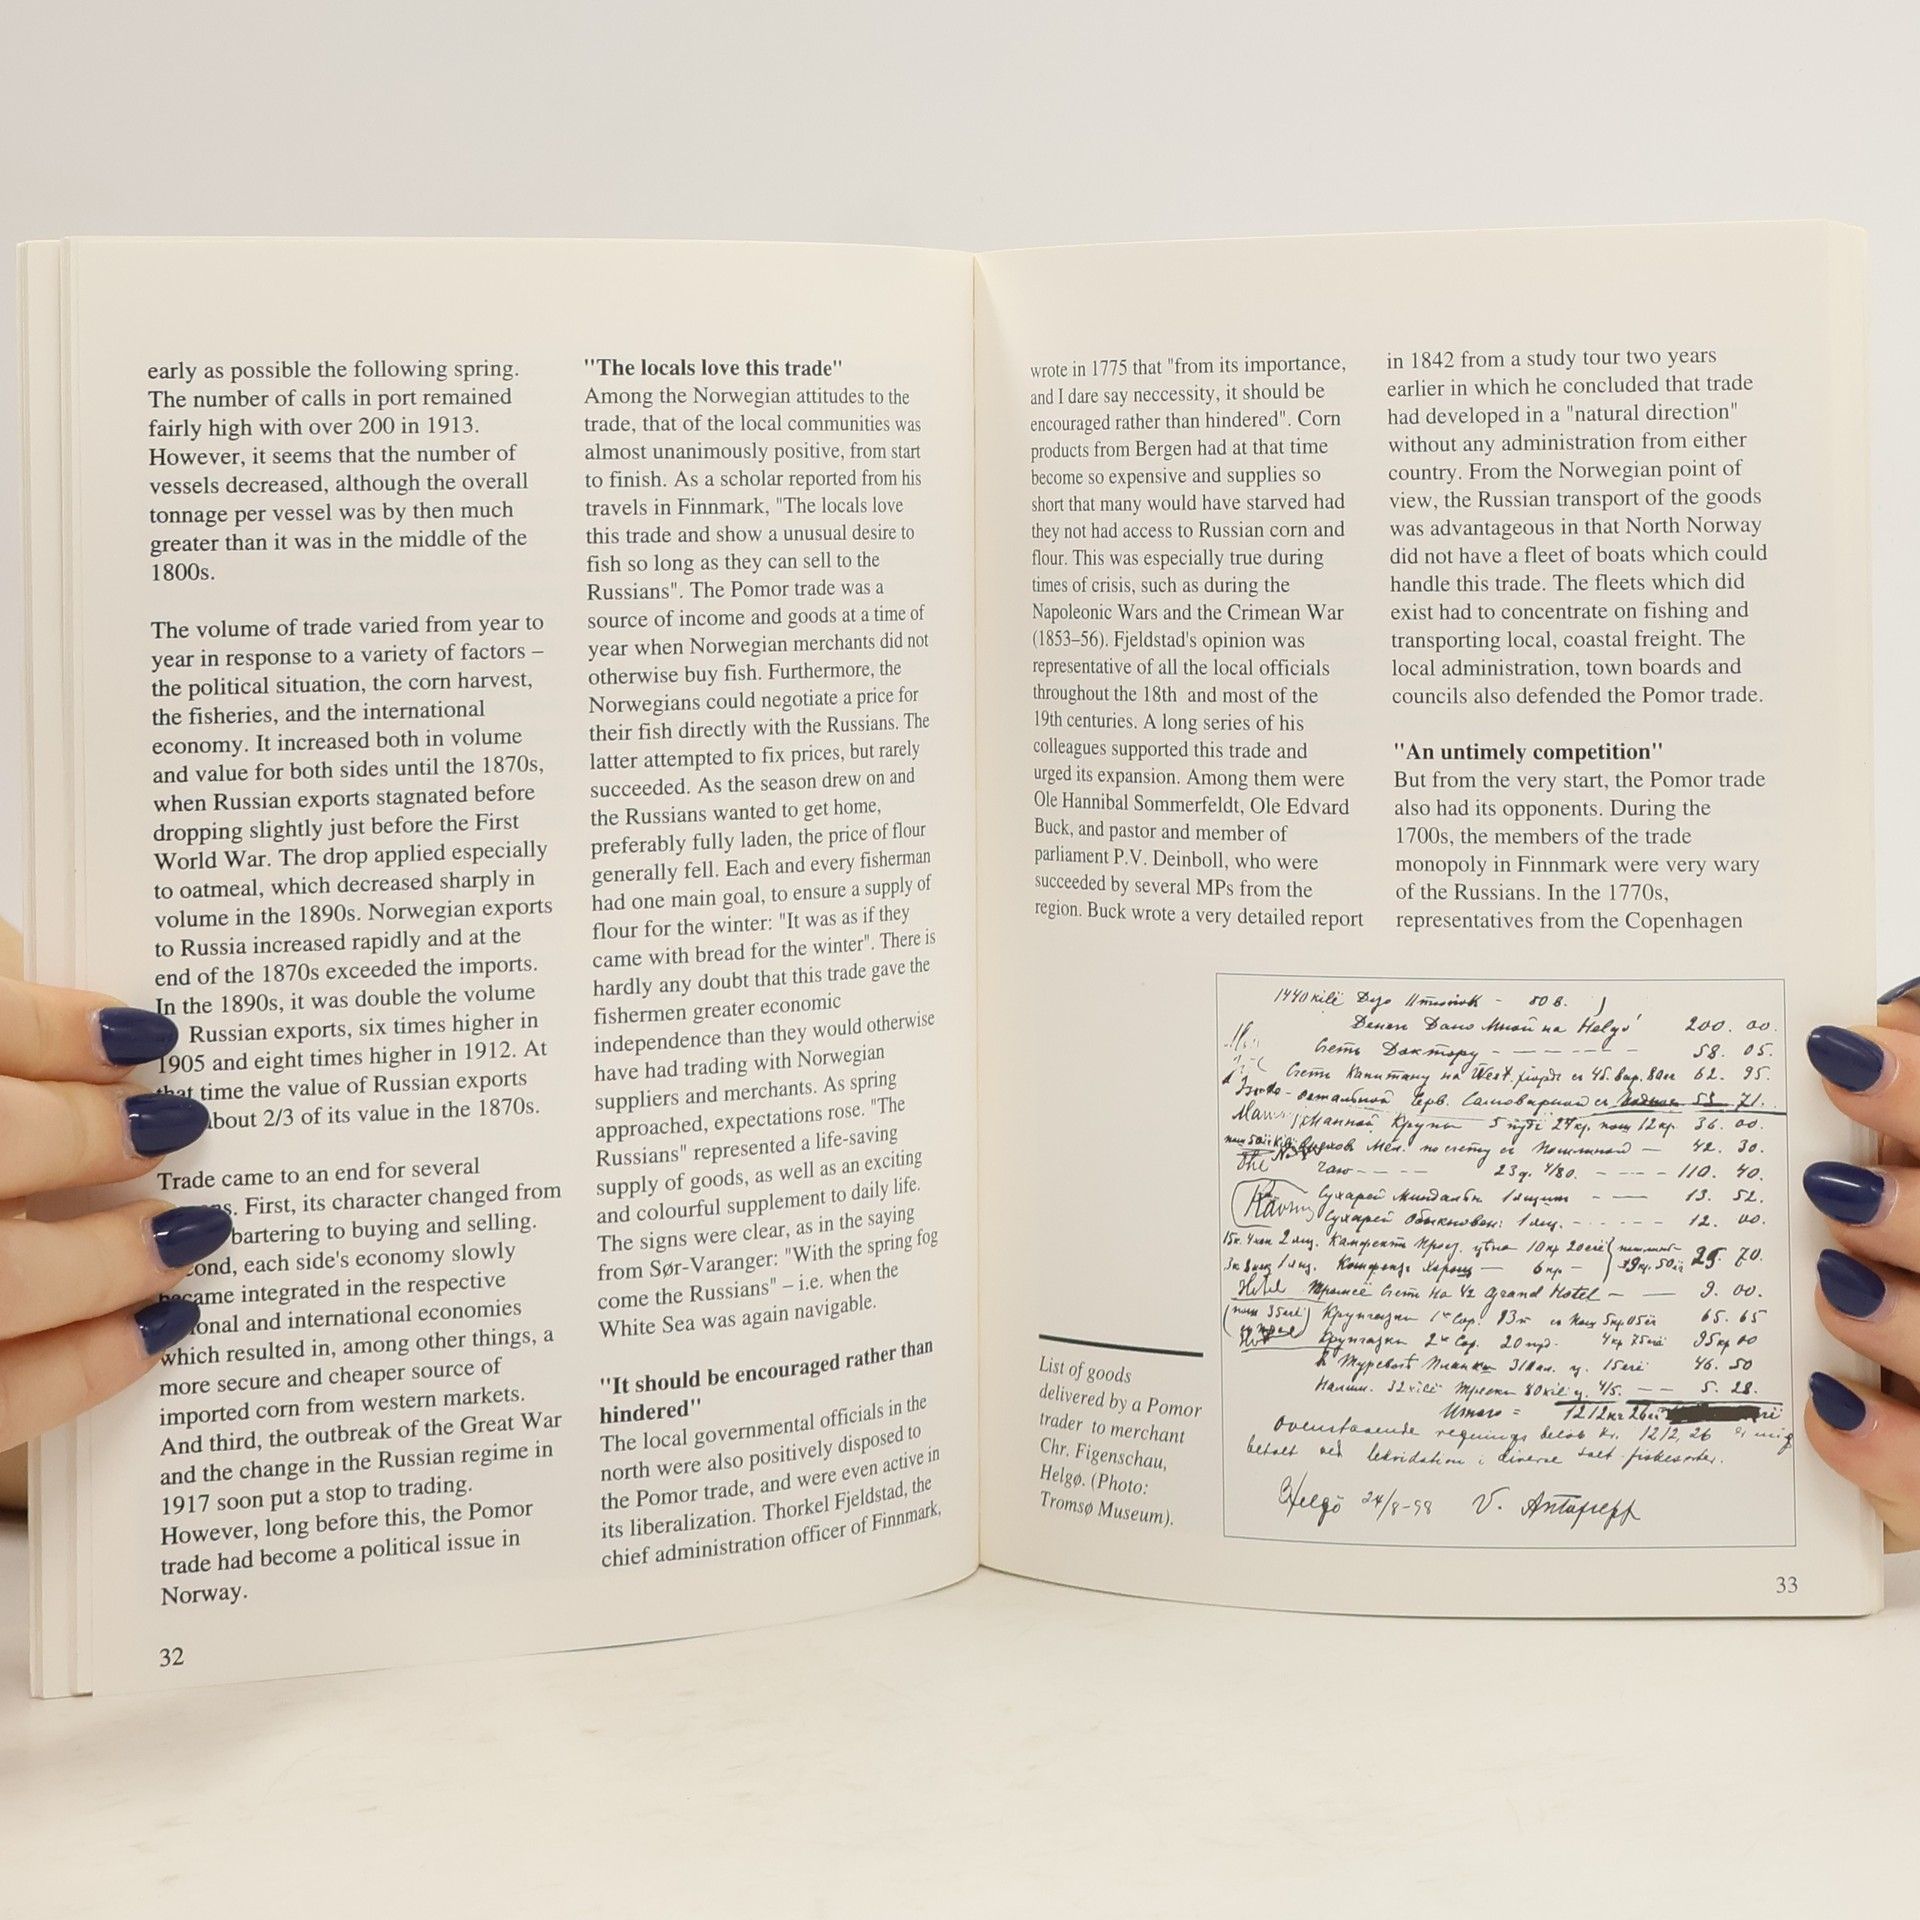 early as possible the following spring.
The number of calls in port remained
fairly high with over 200 in 1913.
However, it seems that the number of
vessels decreased, although the overall
tonnage per vessel was by then much
greater than it was in the middle of the
1800s.
The volume of trade varied from year to
year in response to a variety of factors –
the political situation, the corn harvest,
the fisheries, and the international
economy. It increased both in volume
and value for both sides until the 1870s,
when Russian exports stagnated before
dropping slightly just before the First
World War. The drop applied especially
to oatmeal, which decreased sharply in
volume in the 1890s. Norwegian exports
to Russia increased rapidly and at the
end of the 1870s exceeded the imports.
In the 1890s, it was double the volume
Russian exports, six times higher in
1905 and eight times higher in 1912. At
that time the value of Russian exports
about 2/3 of its value in the 1870s.
Trade came to an end for several
First, its character changed from
bartering to buying and selling.
each side's economy slowly
became integrated in the respective
and international economies
which resulted in, among other things, a
more secure and cheaper source of
imported corn from western markets.
And third, the outbreak of the Great War
and the change in the Russian regime in
1917 soon put a stop to trading.
However, long before this, the Pomor
trade had become a political issue in
Norway.
32
"The locals love this trade"
Among the Norwegian attitudes to the
trade, that of the local communities was
almost unanimously positive, from start
to finish. As a scholar reported from his
travels in Finnmark, "The locals love
this trade and show a unusual desire to
fish so long as they can sell to the
Russians". The Pomor trade was a
source of income and goods at a time of
year when Norwegian merchants did not
otherwise buy fish. Furthermore, the
Norwegians could negotiate a price for
their fish directly with the Russians. The
latter attempted to fix prices, but rarely
succeeded. As the season drew on and
the Russians wanted to get home,
preferably fully laden, the price of flour
generally fell. Each and every fisherman
had one main goal, to ensure a supply of
flour for the winter: "It was as if they
came with bread for the winter". There is
hardly any doubt that this trade gave the
fishermen greater economic
independence than they would otherwise
have had trading with Norwegian
suppliers and merchants. As spring
approached, expectations rose. "The
Russians" represented a life-saving
supply of goods, as well as an exciting
and colourful supplement to daily life.
The signs were clear, as in the saying
from Sør-Varanger: "With the spring fog
come the Russians" – i.e. when the
White Sea was again navigable.
"It should be encouraged rather than
hindered"
The local governmental officials in the
north were also positively disposed to
the Pomor trade, and were even active in
its liberalization. Thorkel Fjeldstad, the
chief administration officer of Finnmark,
wrote in 1775 that "from its importance,
and I dare say neccessity, it should be
encouraged rather than hindered". Corn
products from Bergen had at that time
become so expensive and supplies so
short that many would have starved had
they not had access to Russian corn and
flour. This was especially true during
times of crisis, such as during the
Napoleonic Wars and the Crimean War
(1853–56). Fjeldstad's opinion was
representative of all the local officials
throughout the 18th and most of the
19th centuries. A long series of his
colleagues supported this trade and
urged its expansion. Among them were
Ole Hannibal Sommerfeldt, Ole Edvard
Buck, and pastor and member of
parliament P.V. Deinboll, who were
succeeded by several MPs from the
region. Buck wrote a very detailed report
in 1842 from a study tour two years
earlier in which he concluded that trade
had developed in a "natural direction"
without any administration from either
country. From the Norwegian point of
view, the Russian transport of the goods
was advantageous in that North Norway
did not have a fleet of boats which could
handle this trade. The fleets which did
exist had to concentrate on fishing and
transporting local, coastal freight. The
local administration, town boards and
councils also defended the Pomor trade.
"An untimely competition"
But from the very start, the Pomor trade
also had its opponents. During the
1700s, the members of the trade
monopoly in Finnmark were very wary
of the Russians. In the 1770s,
representatives from the Copenhagen
List of goods
delivered by a Pomor
trader to merchant
Chr. Figenschau,
Helgø. (Photo:
Tromsø Museum).
1440 kili
на Helgö 200. 00.
Доктору 58. 05.
Капитану на West. 62. 95.
53 71.
Манной Крупы 36. 00.
42. 30.
110. 40.
Сухарей 13. 52.
Сухарей 12. 00.
29. 70.
на Grand Hotel 9. 00.
65. 65
95 00
46. 50
5. 28.
Итого = 1212
Ovenstaaende regnings beløb Kr. 1212,26
betalt ved likvidation i diverse salt
Helgö 24/8-98
33